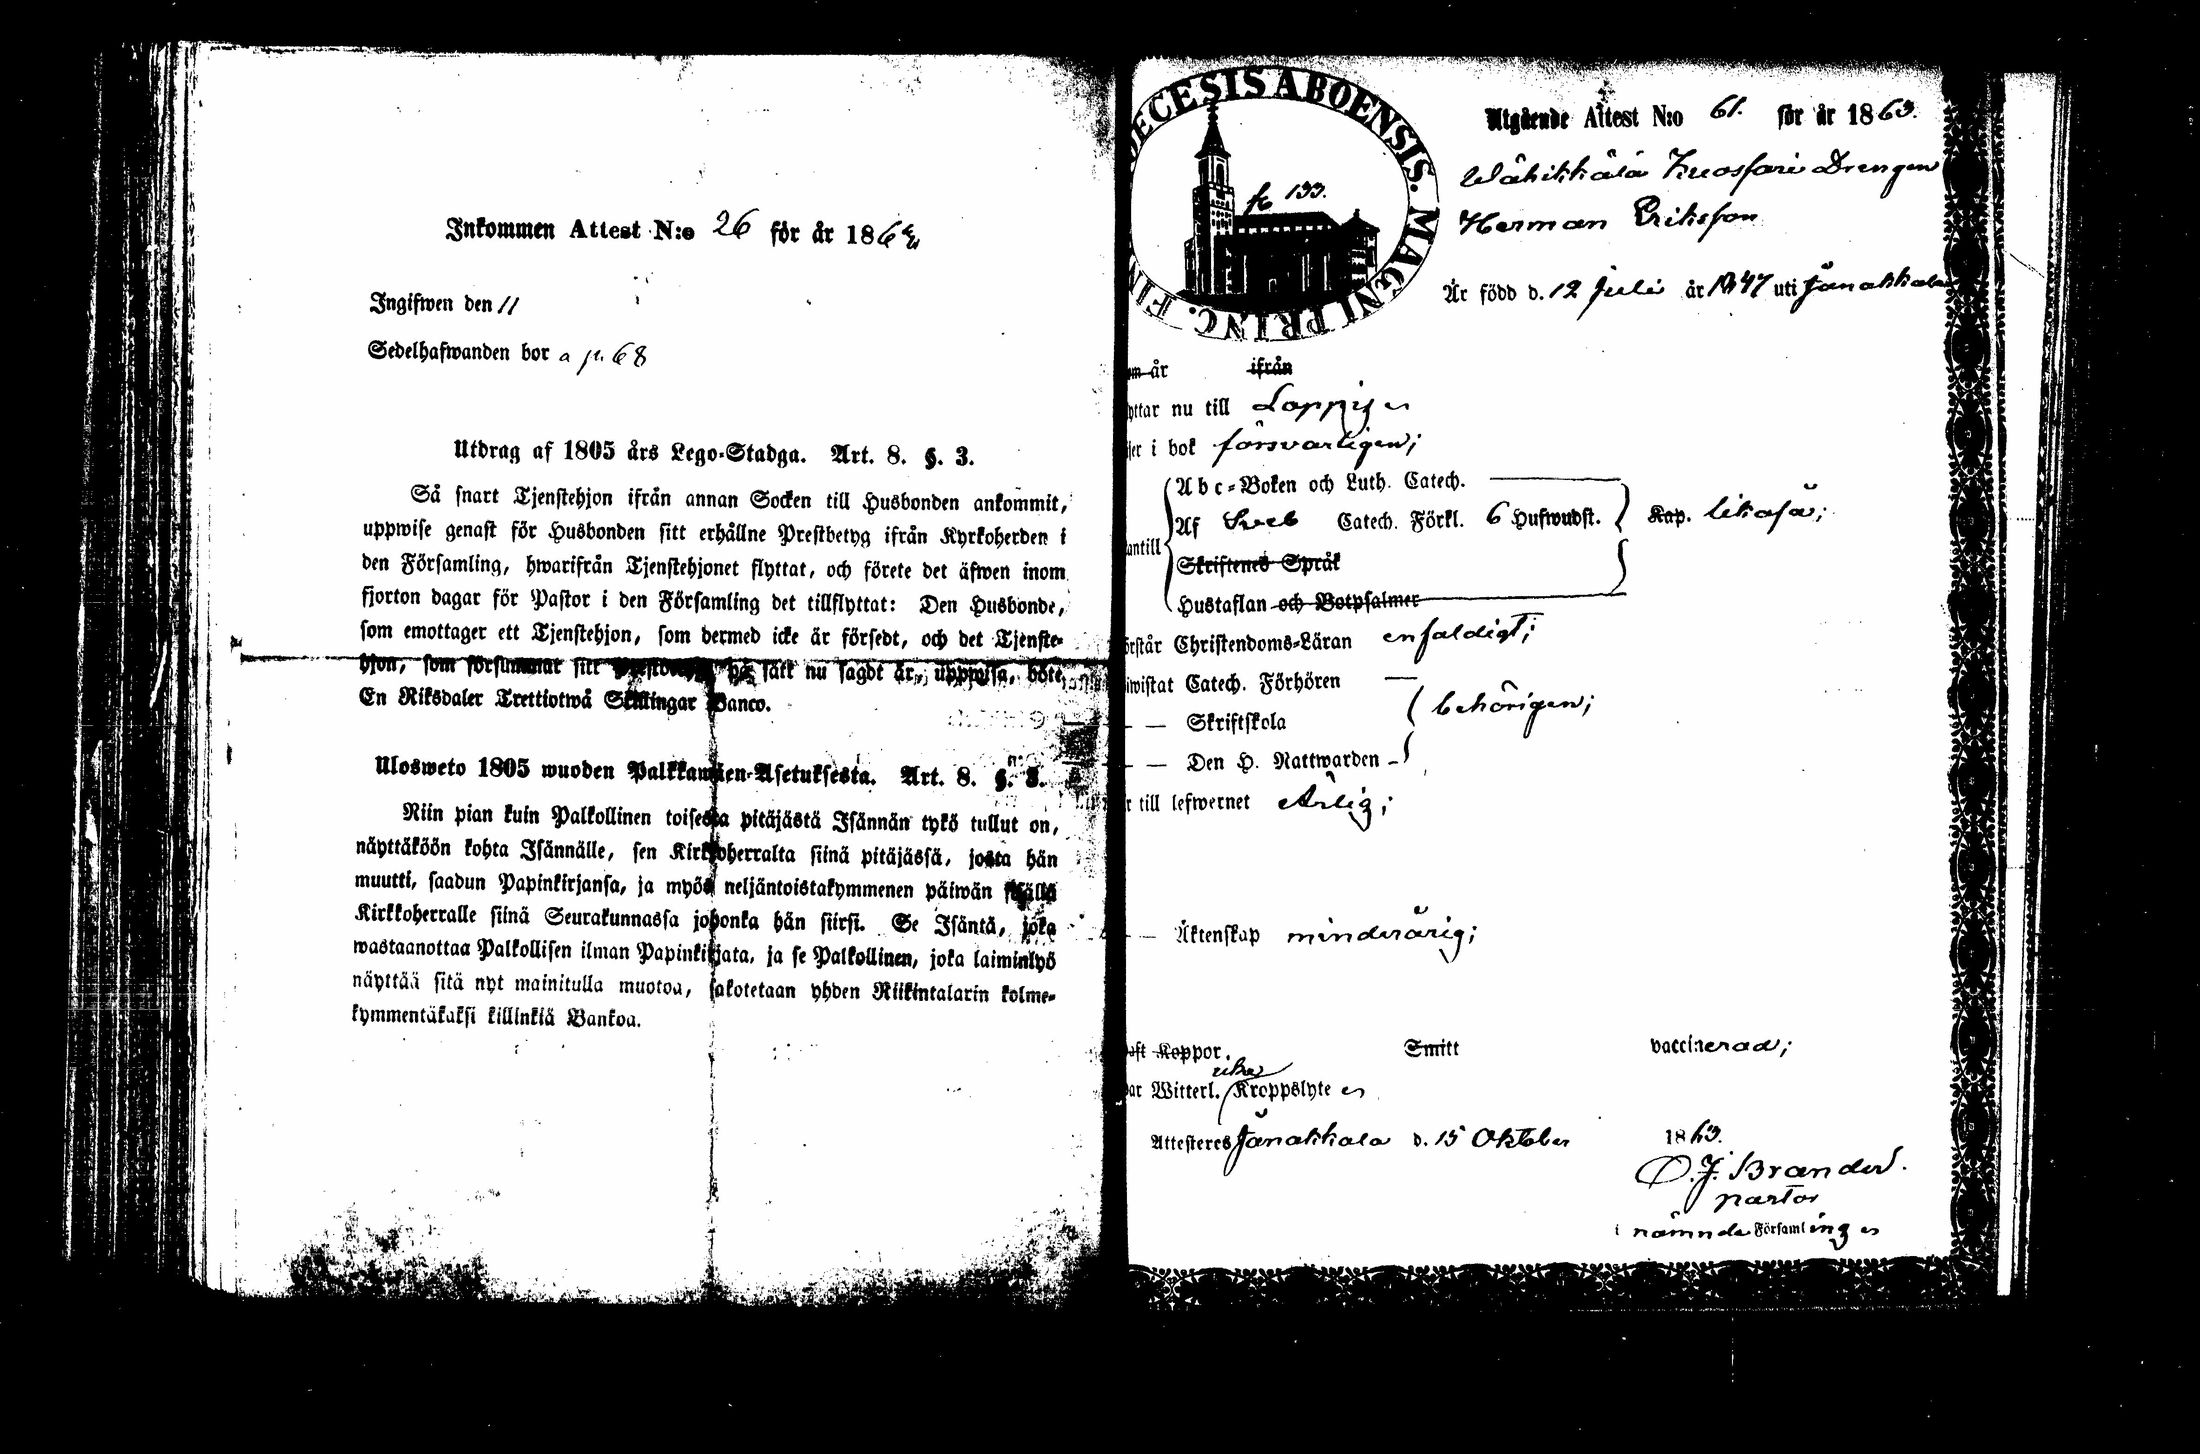 Inkommen Attest N:o 26 för år 186
Ingifwen den 11
Sedelhafwanden bor a p. 68
Utdrag af 1805 års Lego-Stadga. Art. 8. §. 3.
Så snart Tjenstehjon ifrån annan Socken till Husbonden ankommit,
uppwise genast för Husbonden sitt erhållne Prestbetyg ifrån Kyrkoherden i
den Församling, hwarifrån Tjenstehjonet flyttat, och förete det äfwen inom
fjorton dagar för Pastor i den Församling det tillflyttat: Den Husbonde,
som emottager ett Tjenstehjon, som dermed icke är försedt, och det Tjenste-
hjon, som försummat sitt på sätt nu sagdt är, uppwisa, böte
En Riksdaler Trettiotwå Skillingar Banco.
Ulosweto 1805 wuoden Palkkawäen-Asetuksesta. Art. 8. §. 3.
Niin pian kuin Palkollinen toisesta pitäjästä Isännän tykö tullut on,
näyttäköön kohta Isännälle, sen Kirkkoherralta siinä pitäjässä, josta hän
muutti, saadun Papinkirjansa, ja myös neljäntoistakymmenen päiwän sisällä
Kirkkoherralle siinä Seurakunnassa johonka hän siirsi. Se Isäntä, joka
wastaanottaa Palkollisen ilman Papinkirjata, ja se Palkollinen, joka laiminlyö
näyttää sitä nyt mainitulla muotoa, sakotetaan yhden Riikintalarin kolme-
kymmentäkaksi killinkiä Bankoa.
ECESIS ABOENSIS. MAGNI PRINC. FIN
fc 133.
Utgående Attest N:o 61. för år 1863.
Wähikkälä Knosfari Drengen
Herman Eriksson
Är född d. 12 Juli år 1847 uti Janakkala
om år ifrån
yttar nu till Loppis
ser i bok försvarligen;
Abc-Boken och Luth. Catech.
Af Sveb Catech. Förkl. 6 Hufwudst. Kap. likaså;
antill
Skriftenes Språk
Hustaflan och Botpsalmer
örstår Christendoms-Läran enfaldigt;
iwistat Catech. Förhören
— — Skriftskola behörigen;
— — Den H. Nattwarden
r till lefwernet Ärlig;
— — Äktenskap minderårig;
aft Koppor. Smitt vaccinerad;
ar Witterl. utan Kroppslyte
Attesteres Janakkala d. 15 Oktober 1863.
O. J. Brander.
pastor
i nämnde Församling